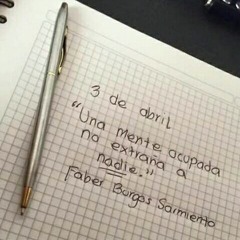 3 de abril
"Una mente ocupada
no extraña a
nadie."
Faber Burgos Sarmiento